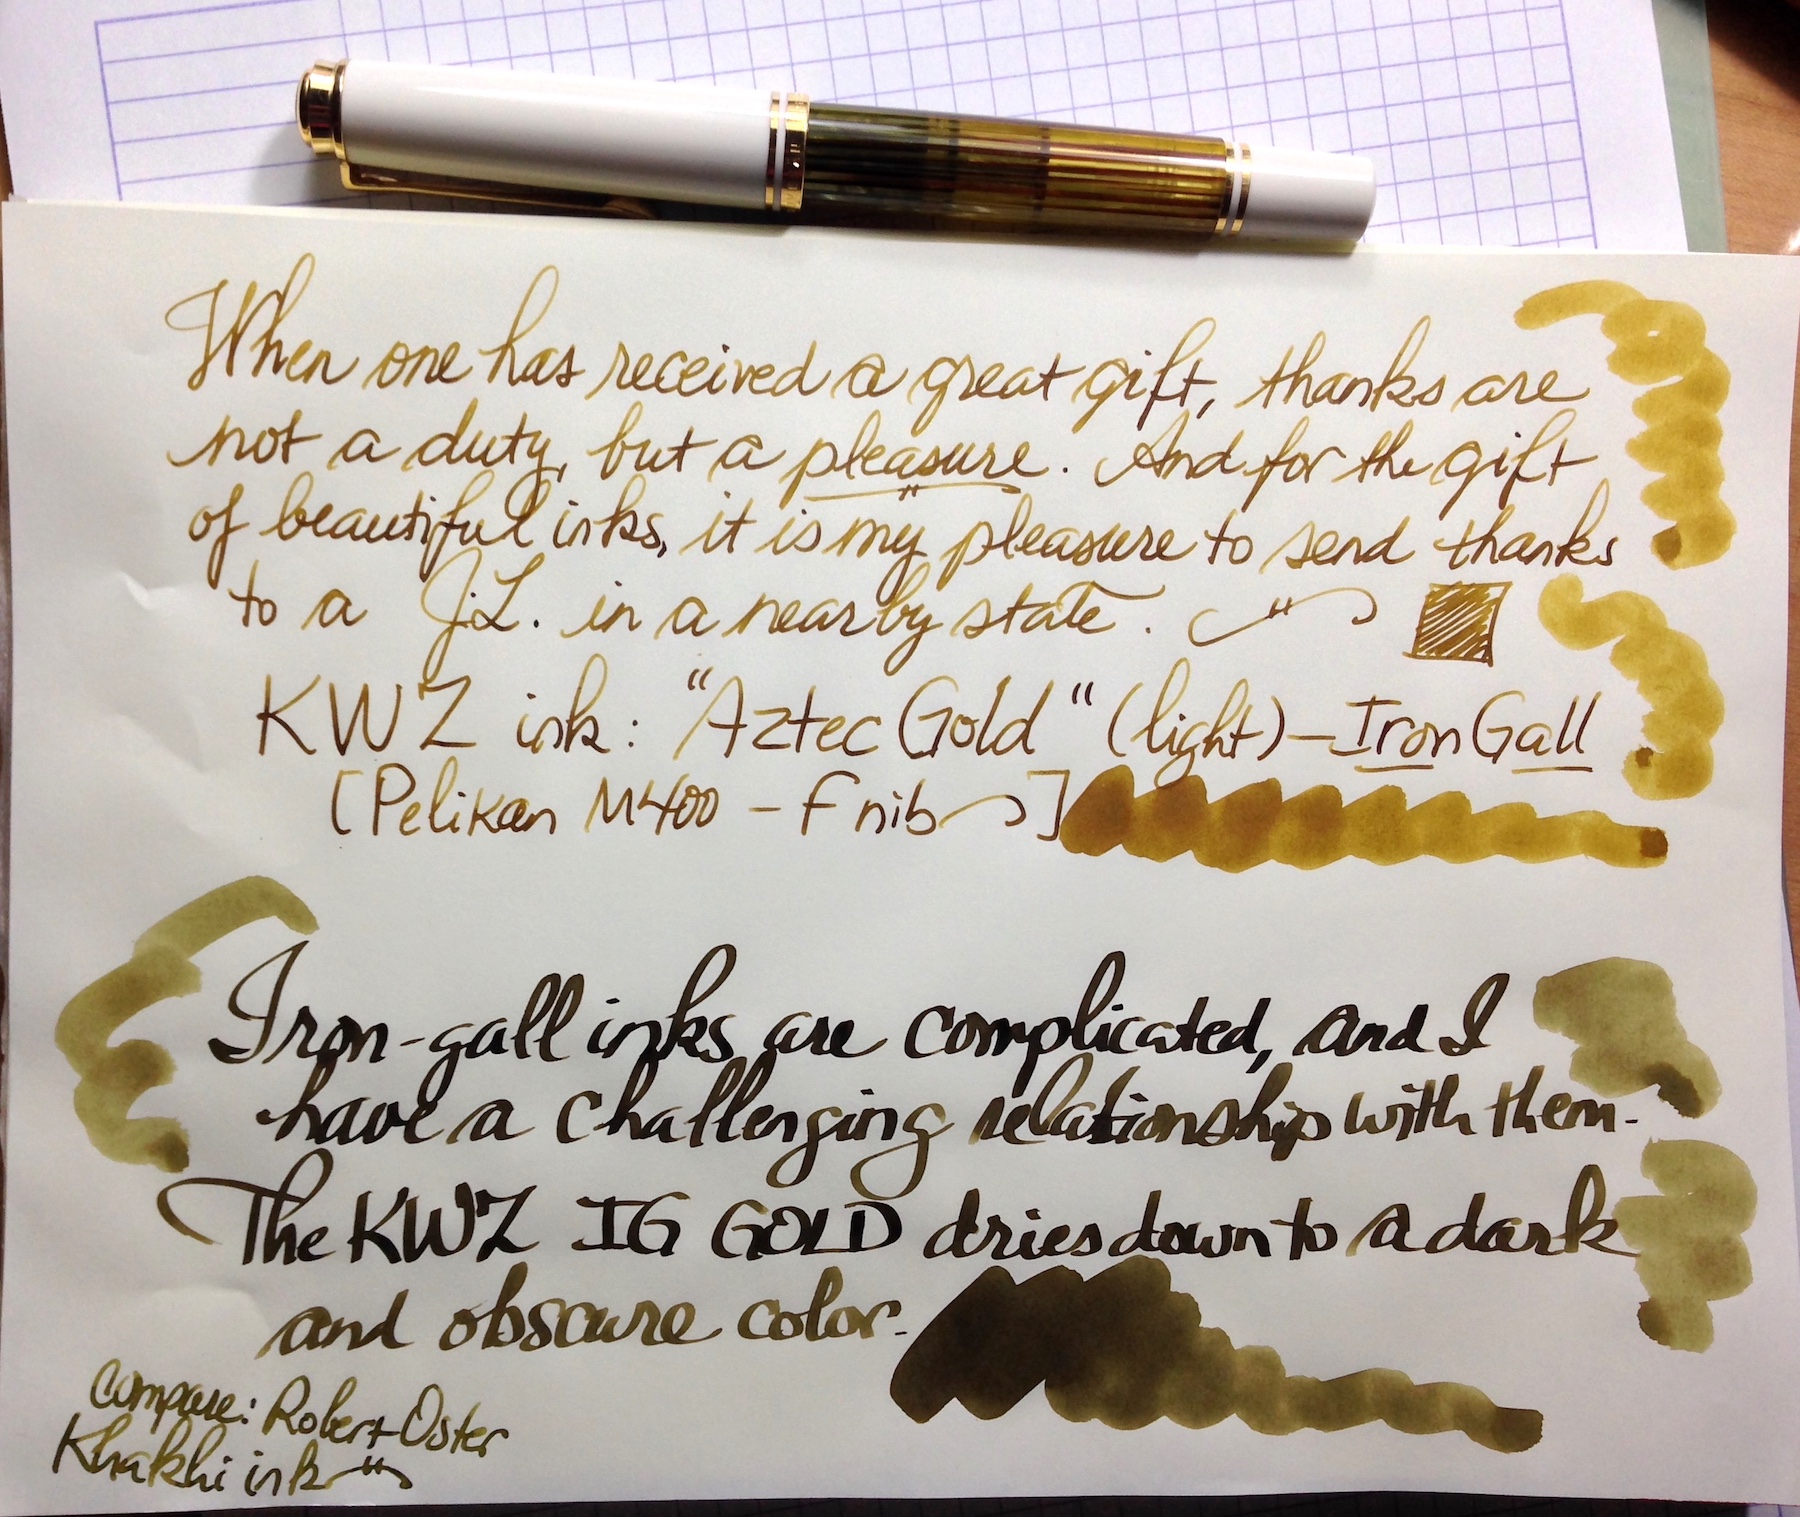 When one has received a great gift, thanks are
not a duty, but a pleasure. And for the gift
of beautiful inks, it is my pleasure to send thanks
to a J.L. in a nearby state.
KWZ ink: "Aztec Gold" (light) – Iron Gall
[Pelikan M400 – F nib ]
Iron-gall inks are complicated, and I
have a challenging relationship with them.
The KWZ IG GOLD dries down to a dark
and obscure color.
Compare: Robert Oster
Khakhi ink